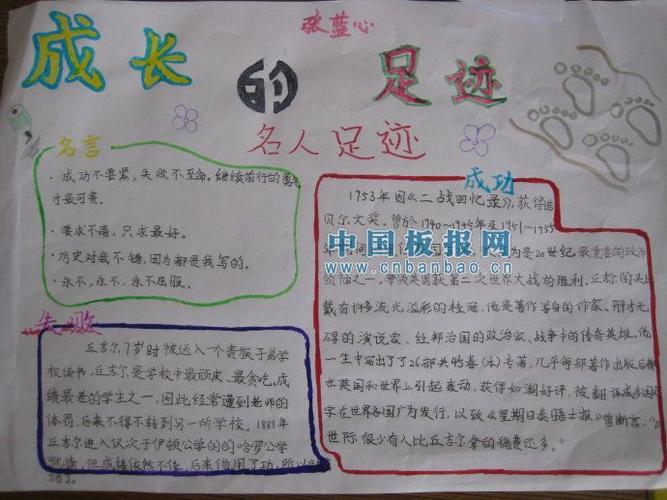 张蓝心
成长的足迹
名人足迹
名言
·成功不要紧,失败不至命,继续前行的勇气
才最可贵。
·要求不高,只求最好。
·历史对我不错,因为都是我写的。
·永不,永不,永不屈服。
失败
丘吉尔7岁时被送入一个贵族子弟学
校读书,丘吉尔是学校中最顽皮、最贪吃、成
绩最差的学生之一,因此经常遭到老师的
体罚,后来不得不转到另一所学校。1888年
丘吉尔进入仅次于伊顿公学的的哈罗公学
就读,但成绩依然不佳,后来他用了功,所以
成功了。
成功
1953年因《二战回忆录》,获得诺
贝尔文奖。曾于1940~1945年及1951~1955
年
为是20世纪最重要的政治
领袖之一,带领英国获第二次世界大战的胜利,丘吉尔的头上
戴有许多流光溢彩的桂冠,他是著作等身的作家、辩才无
碍的演说家、经邦治国的政治家、战争中的传奇英雄。他
一生中写出了了26部共45卷(本)专著,几乎每部著作出版后都
在英国和世界上引起轰动,获得如潮好评,被翻译成多国文
字在世界各国广为发行,以致《星期日泰晤士报》曾断言:"20
世际,很少有人比丘吉尔拿的稿费还多。"
中国板报网
www.cnbanbao.cn